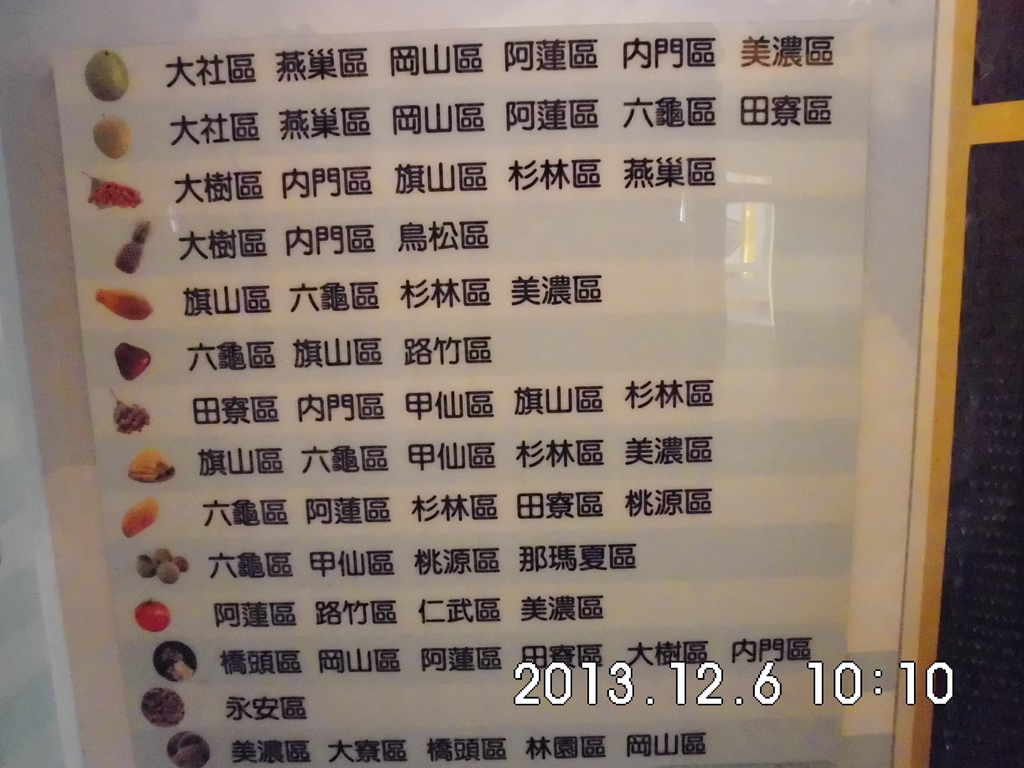 大社區 燕巢區 岡山區 阿蓮區 內門區 美濃區
大社區 燕巢區 岡山區 阿蓮區 六龜區 田寮區
大樹區 內門區 旗山區 杉林區 燕巢區
大樹區 內門區 鳥松區
旗山區 六龜區 杉林區 美濃區
六龜區 旗山區 路竹區
田寮區 內門區 甲仙區 旗山區 杉林區
旗山區 六龜區 甲仙區 杉林區 美濃區
六龜區 阿蓮區 杉林區 田寮區 桃源區
六龜區 甲仙區 桃源區 那瑪夏區
阿蓮區 路竹區 仁武區 美濃區
橋頭區 岡山區 阿蓮區 田寮區 大樹區 內門區
永安區
美濃區 大寮區 橋頭區 林園區 岡山區
2013.12.6 10:10